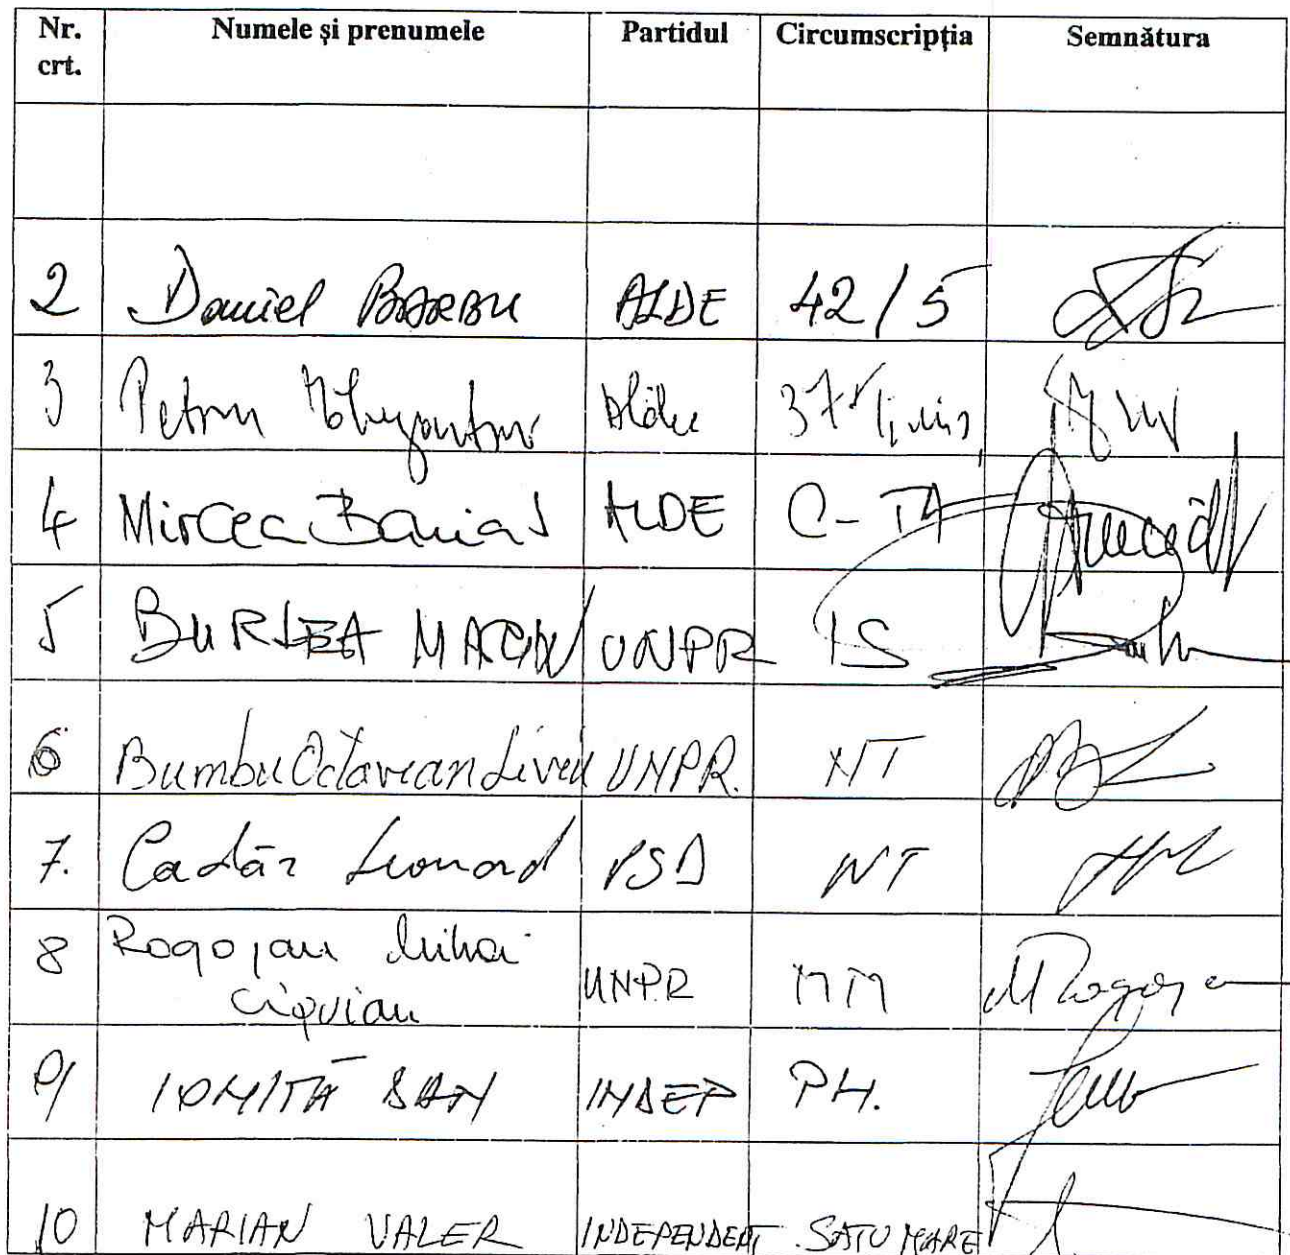 Nr. crt. Numele și prenumele Partidul Circumscripția Semnătura
2 Daniel BARBU ALDE 42/5
3 Petru Alde 37 Timiș
4 Mircea Banias ALDE C-TA
5 BURLEA MARIN UNPR IS
6 Bumbu Octavian Liviu UNPR. NT
7. Cadăr Leonard PSD NT
8 Rogojan Mihai Ciprian UNPR MM
9 IONIȚĂ DAN INDEP PH.
10 MARIAN VALER INDEPENDENT SATU MARE